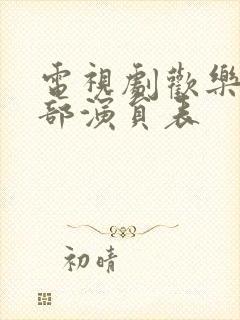 電視劇歡樂
部演員表
初晴